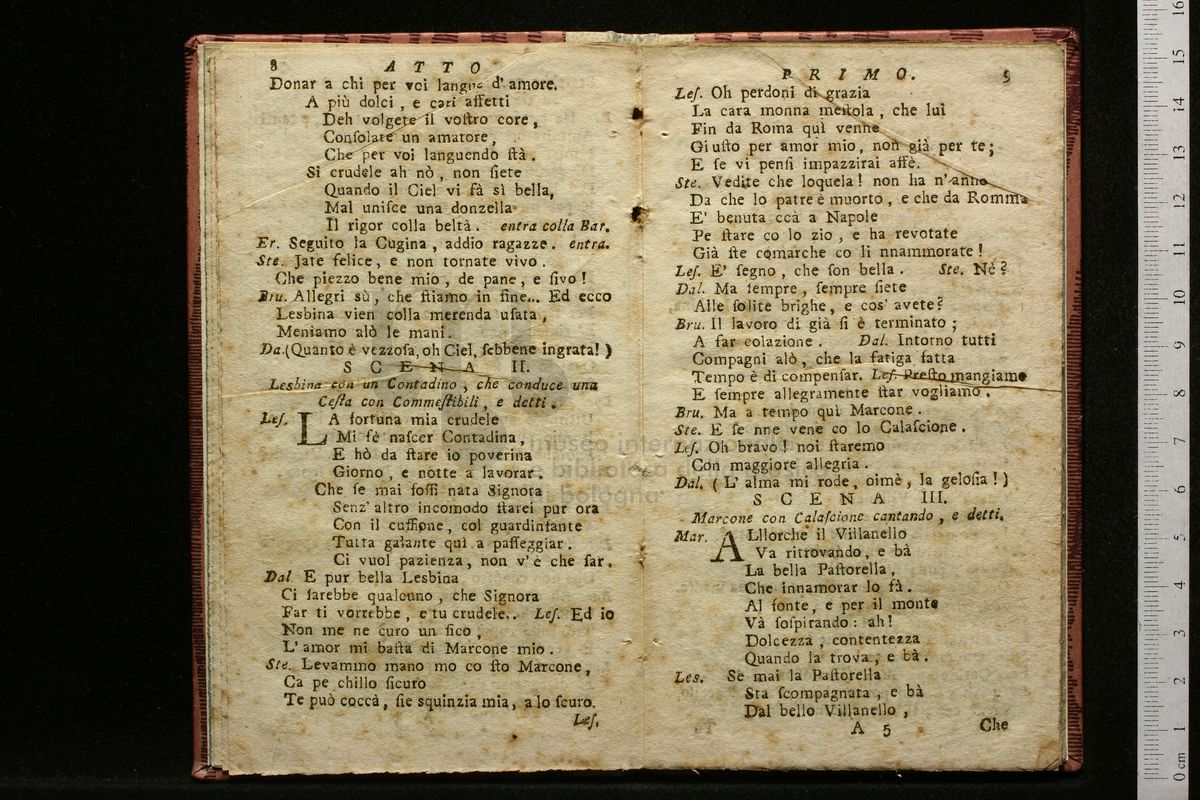 8 ATTO
Donar a chi per voi langue d' amore.
A più dolci, e cari affetti
Deh volgete il vostro core,
Consolate un amatore,
Che per voi languendo stà.
Si crudele ah nò, non siete
Quando il Ciel vi fà sì bella,
Mal unisce una donzella
Il rigor colla beltà. entra colla Bar.
Er. Seguito la Cugina, addio ragazze. entra.
Ste. Jate felice, e non tornate vivo.
Che piezzo bene mio, de pane, e sivo!
Bru. Allegri sù, che stiamo in fine... Ed ecco
Lesbina vien colla merenda usata,
Meniamo alò le mani.
Da. (Quanto è vezzosa, oh Ciel, sebbene ingrata!)
SCENA II.
Lesbina con un Contadino, che conduce una
Cesta con Commestibili, e detti.
Les. LA fortuna mia crudele
Mi fè nascer Contadina,
E hò da stare io poverina
Giorno, e notte a lavorar.
Che se mai fossi nata Signora
Senz' altro incomodo starei pur ora
Con il cuffione, col guardinfante
Tutta galante quì a passeggiar.
Ci vuol pazienza, non v' è che far.
Dal E pur bella Lesbina
Ci sarebbe qualcuno, che Signora
Far ti vorrebbe, e tu crudele.. Les. Ed io
Non me ne curo un fico,
L' amor mi basta di Marcone mio.
Ste. Levammo mano mo co sto Marcone,
Ca pe chillo sicuro
Te può coccà, sie squinzia mia, a lo scuro.
Les.
PRIMO. 9
Les. Oh perdoni di grazia
La cara monna mestola, che lui
Fin da Roma quì venne
Giusto per amor mio, non già per te;
E se vi pensi impazzirai affè.
Ste. Vedite che loquela! non ha n' anno
Da che lo patre è muorto, e che da Romma
E' benuta ccà a Napole
Pe stare co lo zio, e ha revotate
Già ste comarche co li nnammorate!
Les. E' segno, che son bella. Ste. Nè?
Dal. Ma sempre, sempre siete
Alle solite brighe, e cos' avete?
Bru. Il lavoro di già si è terminato;
A far colazione. Dal. Intorno tutti
Compagni alò, che la fatiga fatta
Tempo è di compensar. Les. Presto mangiamo
E sempre allegramente star vogliamo.
Bru. Ma a tempo quì Marcone.
Ste. E se nne vene co lo Calascione.
Les. Oh bravo! noi staremo
Con maggiore allegria.
Dal. (L' alma mi rode, oimè, la gelosia!)
SCENA III.
Marcone con Calascione cantando, e detti.
Mar. ALllorchè il Villanello
Va ritrovando, e bà
La bella Pastorella,
Che innamorar lo fà.
Al fonte, e per il monte
Và sospirando: ah!
Dolcezza, contentezza
Quando la trova, e bà.
Les. Se mai la Pastorella
Sta scompagnata, e bà
Dal bello Villanello,
A 5 Che
museo internazionale
e biblioteca della musica
di bologna
0 cm 1 2 3 4 5 6 7 8 9 10 11 12 13 14 15 16